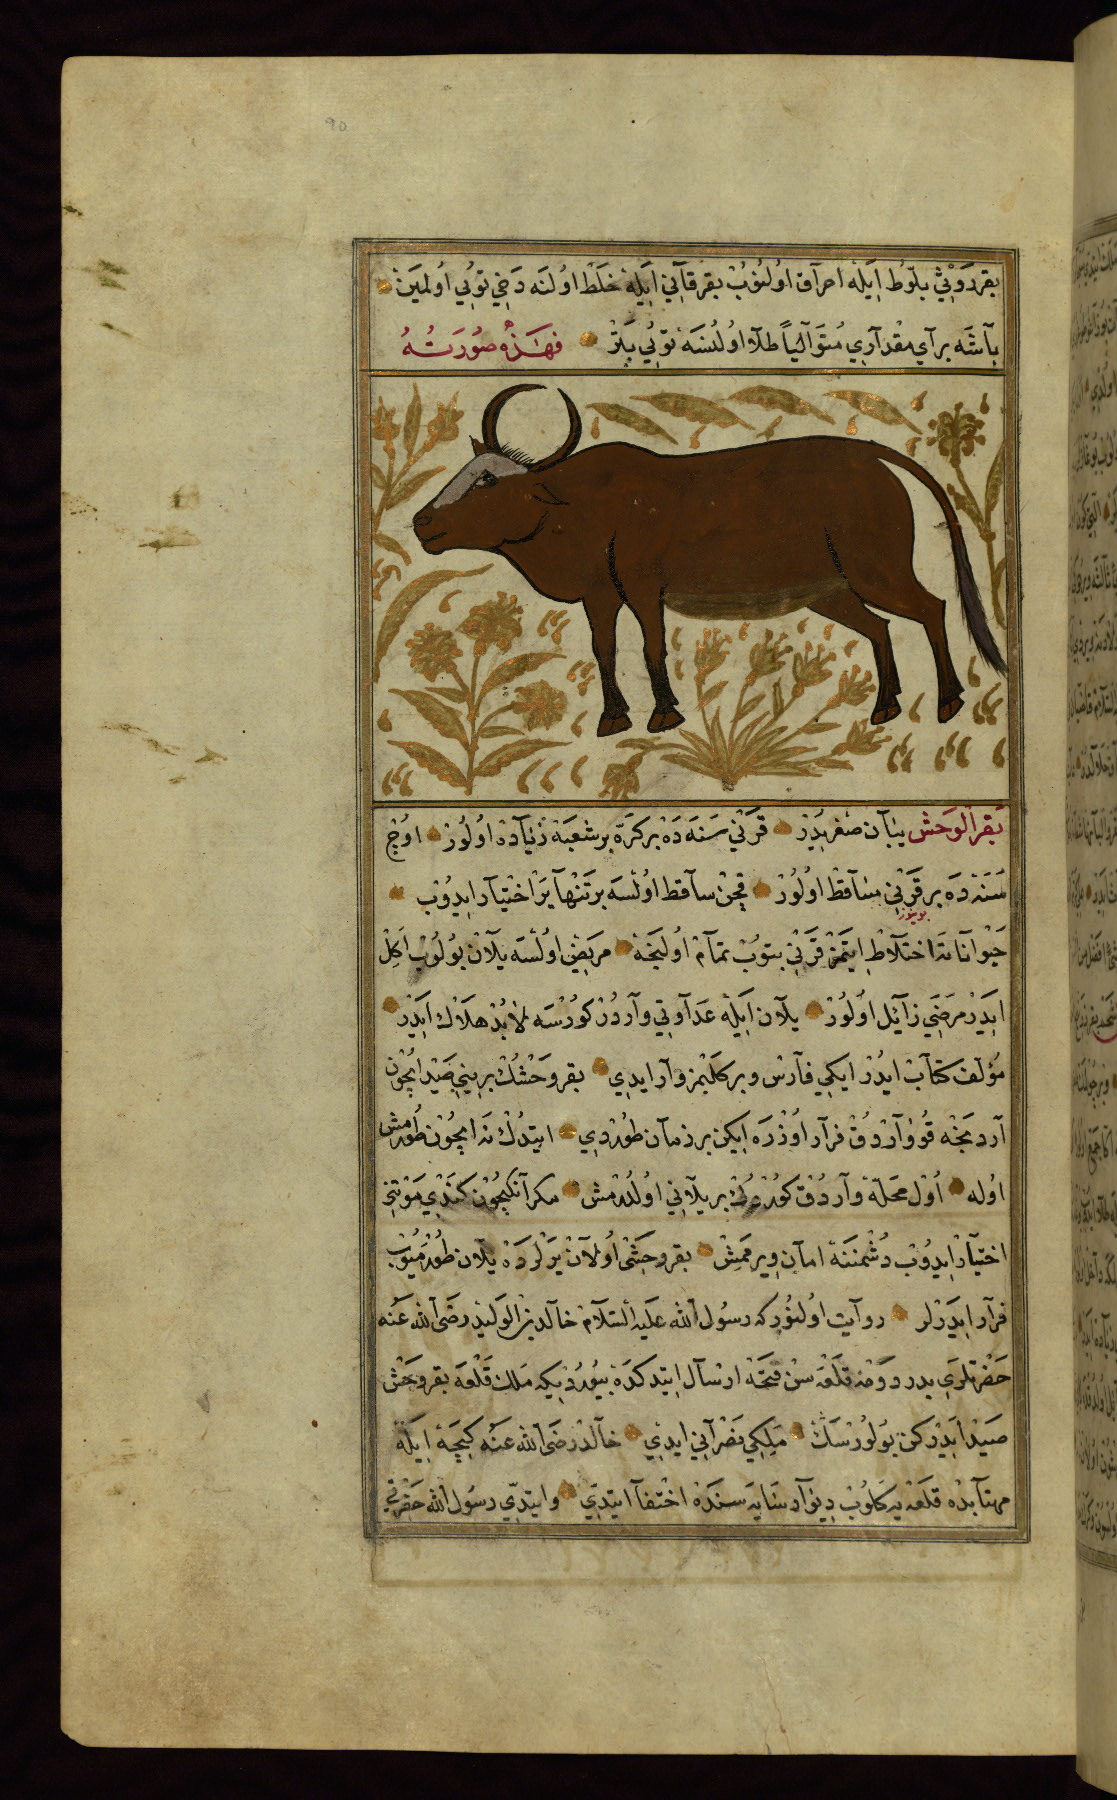 بقر روثی بلّوط ایله احراق اولنوب بقر قانی ایله خلط اولنه دخی توبی اولمین
باشه بر آی مقداری متوالیاً طلا اولنسه توبی بتر فهذه صورته
بقر الوحش یبان صغریدر قرنی سنه ده بر کره بر شعبه زیاده اولور اوچ
سنه ده بر قرنی ساقط اولور قچن ساقط اولسه بر تنها یر اختیار ایدوب
بوینوز
حیواناته اختلاط ایتمز قرنی بتوب تمام اولینجه مریض اولسه یلان بولوب اکل
ایدر مرضی زائل اولور یلان ایله عداوتی واردر کورسه لابد هلاک ایدر
مؤلف کتاب ایدر ایکی فارس و بر کلبمز وار ایدی بقر وحشنک برینی صید ایچون
آردنجه قوواردق فرار اوزره ایکن بر زمان طوردی ایتدک نه ایچون طورمش
اوله اول محله واردق کوردک بر یلانی اولدرمش مکر آنکچون کندی موتنی
اختیار ایدوب دشمننه امان ویرممش بقر وحشی اولان یرلرده یلان طورمیوب
فرار ایدرلر روایت اولنور که رسول الله علیه السلام خالد بن الولید رضی الله عنه
حضرتلری بدر دومه قلعه سن فتحه ارسال ایتدکده بیوردیکه ملک قلعه بقر وحش
صید ایدرکن بولورسک ملکی نصرانی ایدی خالد رضی الله عنه کیجه ایله
مهتابده قلعه یه کلوب دیوار سایه سنده اختفا ایتدی وایتدی رسول الله حضرتی